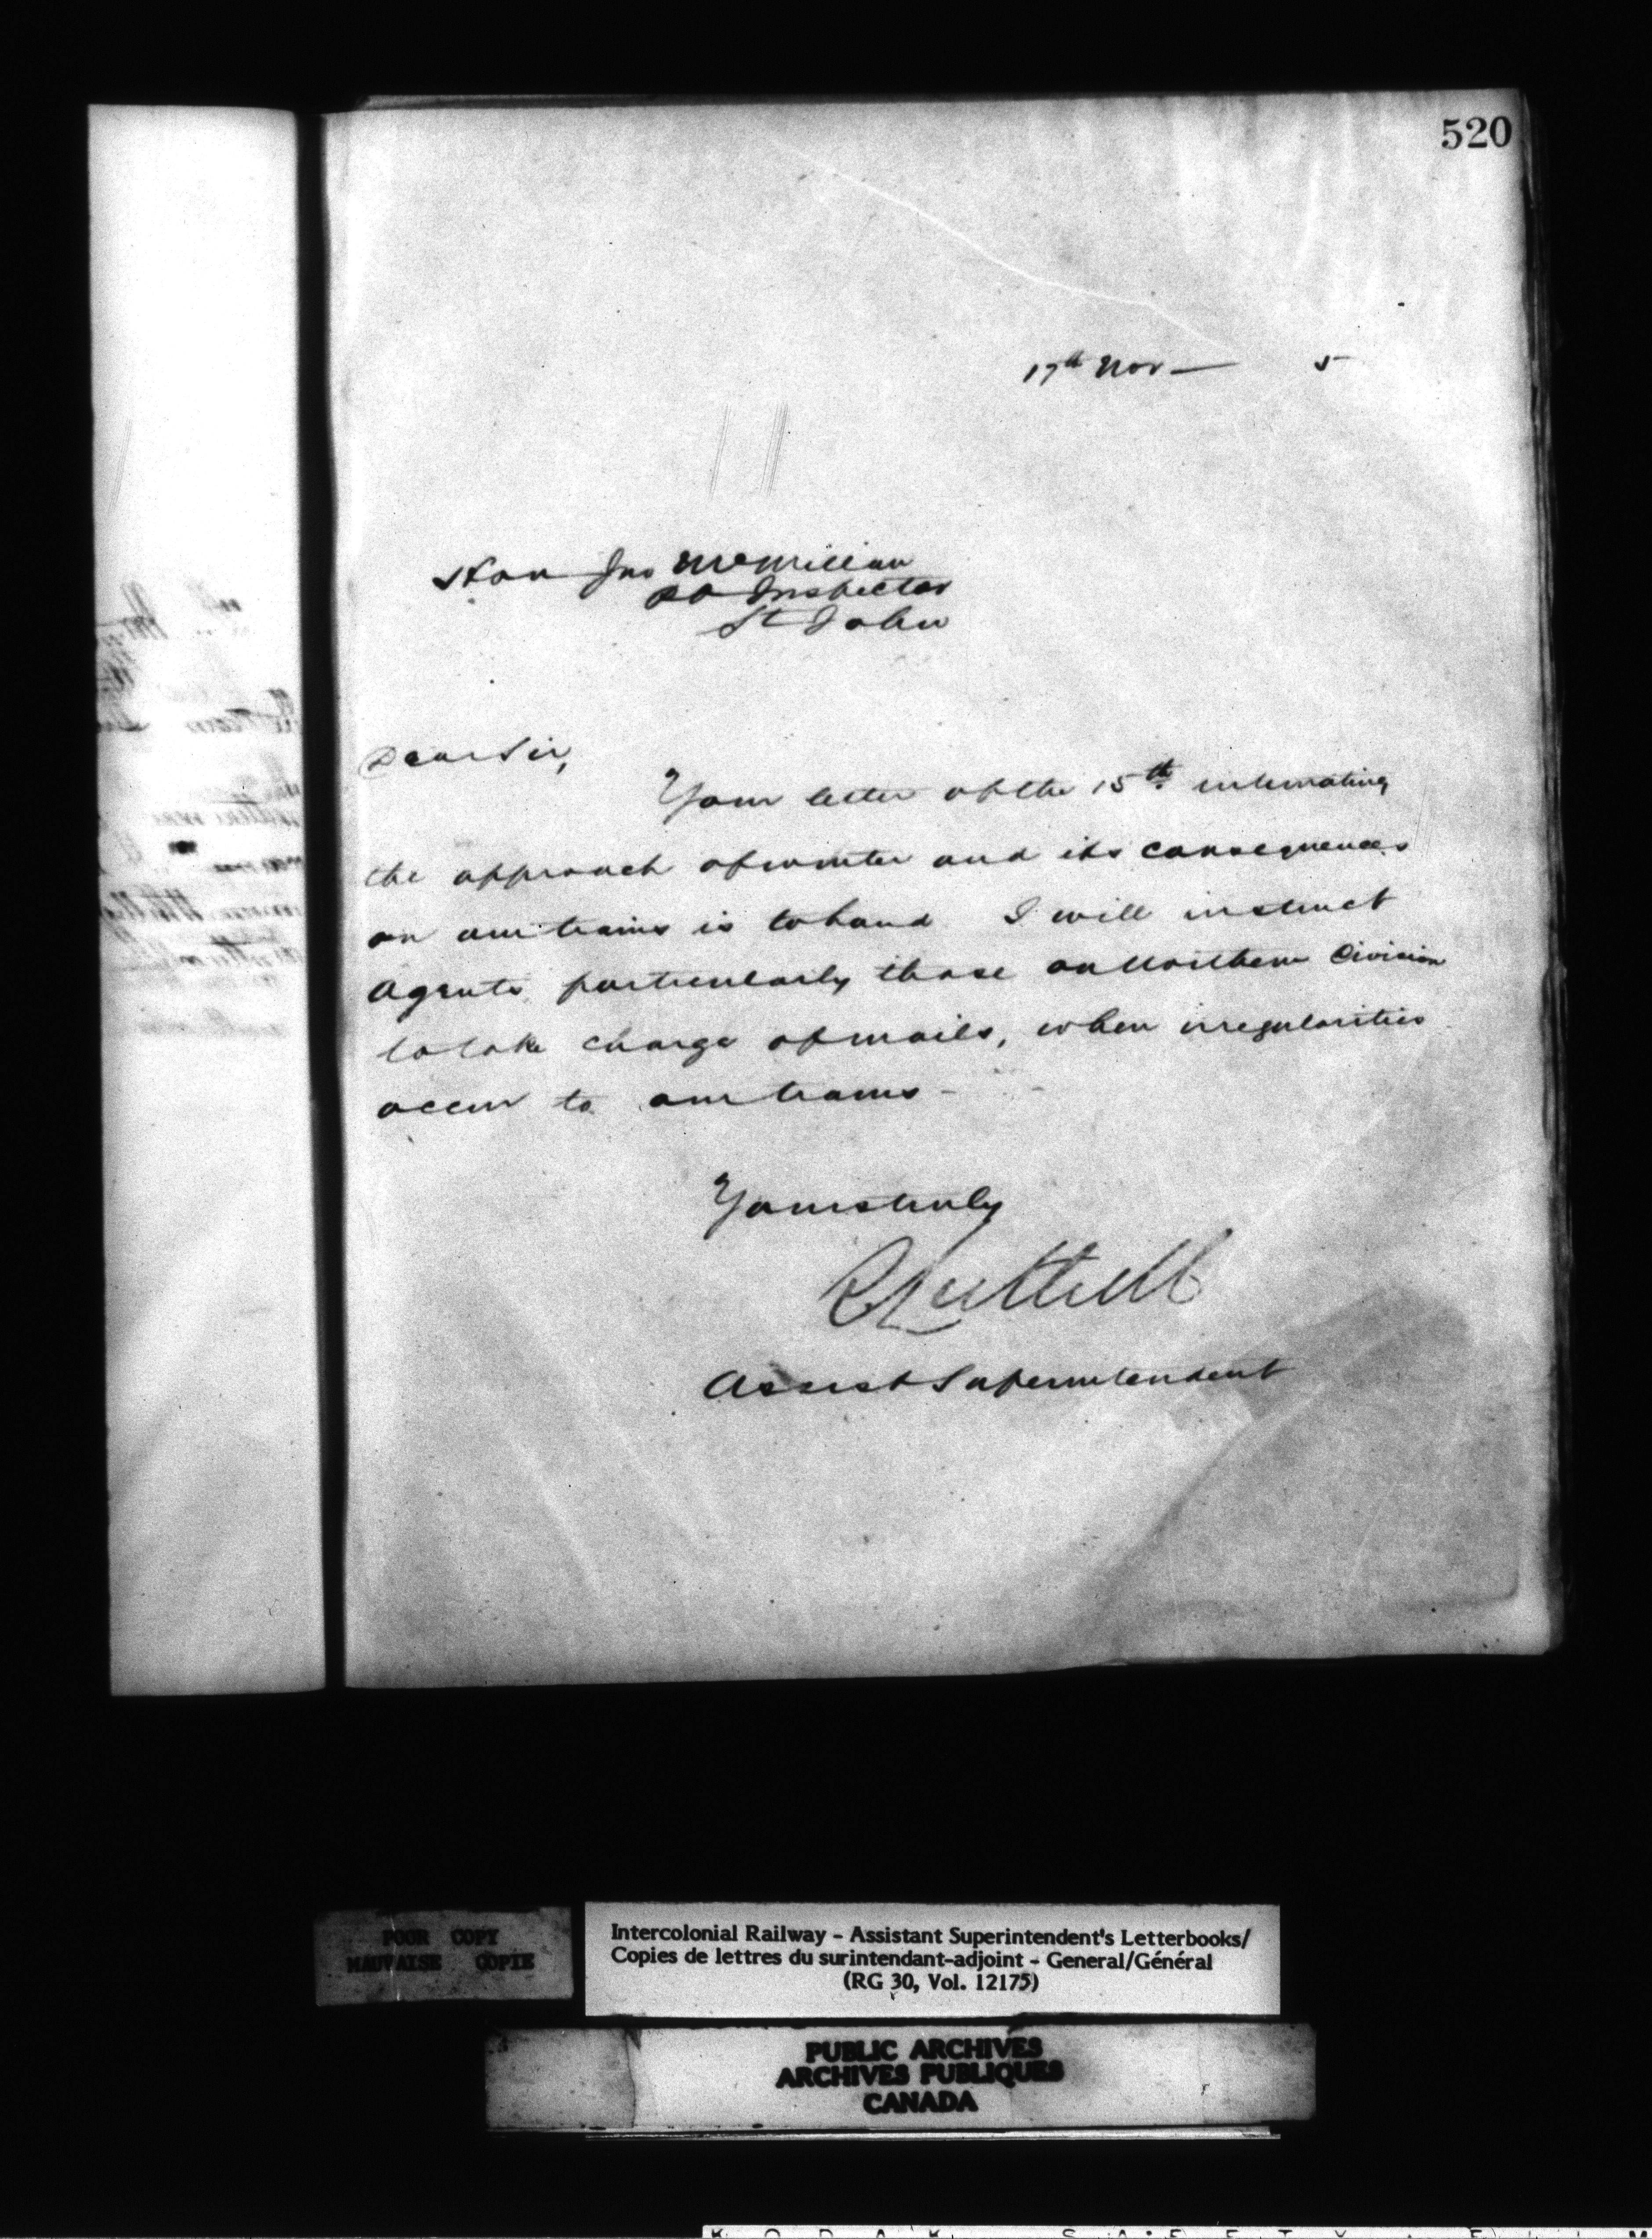 520
17th Nov — 5
Hon Jno McMillan
PO Inspector
St John
Dear Sir,
Your letter of the 15th intimating
the approach of winter and its consequences
on our trains is to hand I will instruct
Agents particularly those on Northern Division
to take charge of mails, when irregularities
occur to our trains -
Yours truly
Assist Superintendent
POOR COPY
MAUVAISE COPIE
Intercolonial Railway - Assistant Superintendent's Letterbooks/
Copies de lettres du surintendant-adjoint - General/Général
(RG 30, Vol. 12175)
PUBLIC ARCHIVES
ARCHIVES PUBLIQUES
CANADA